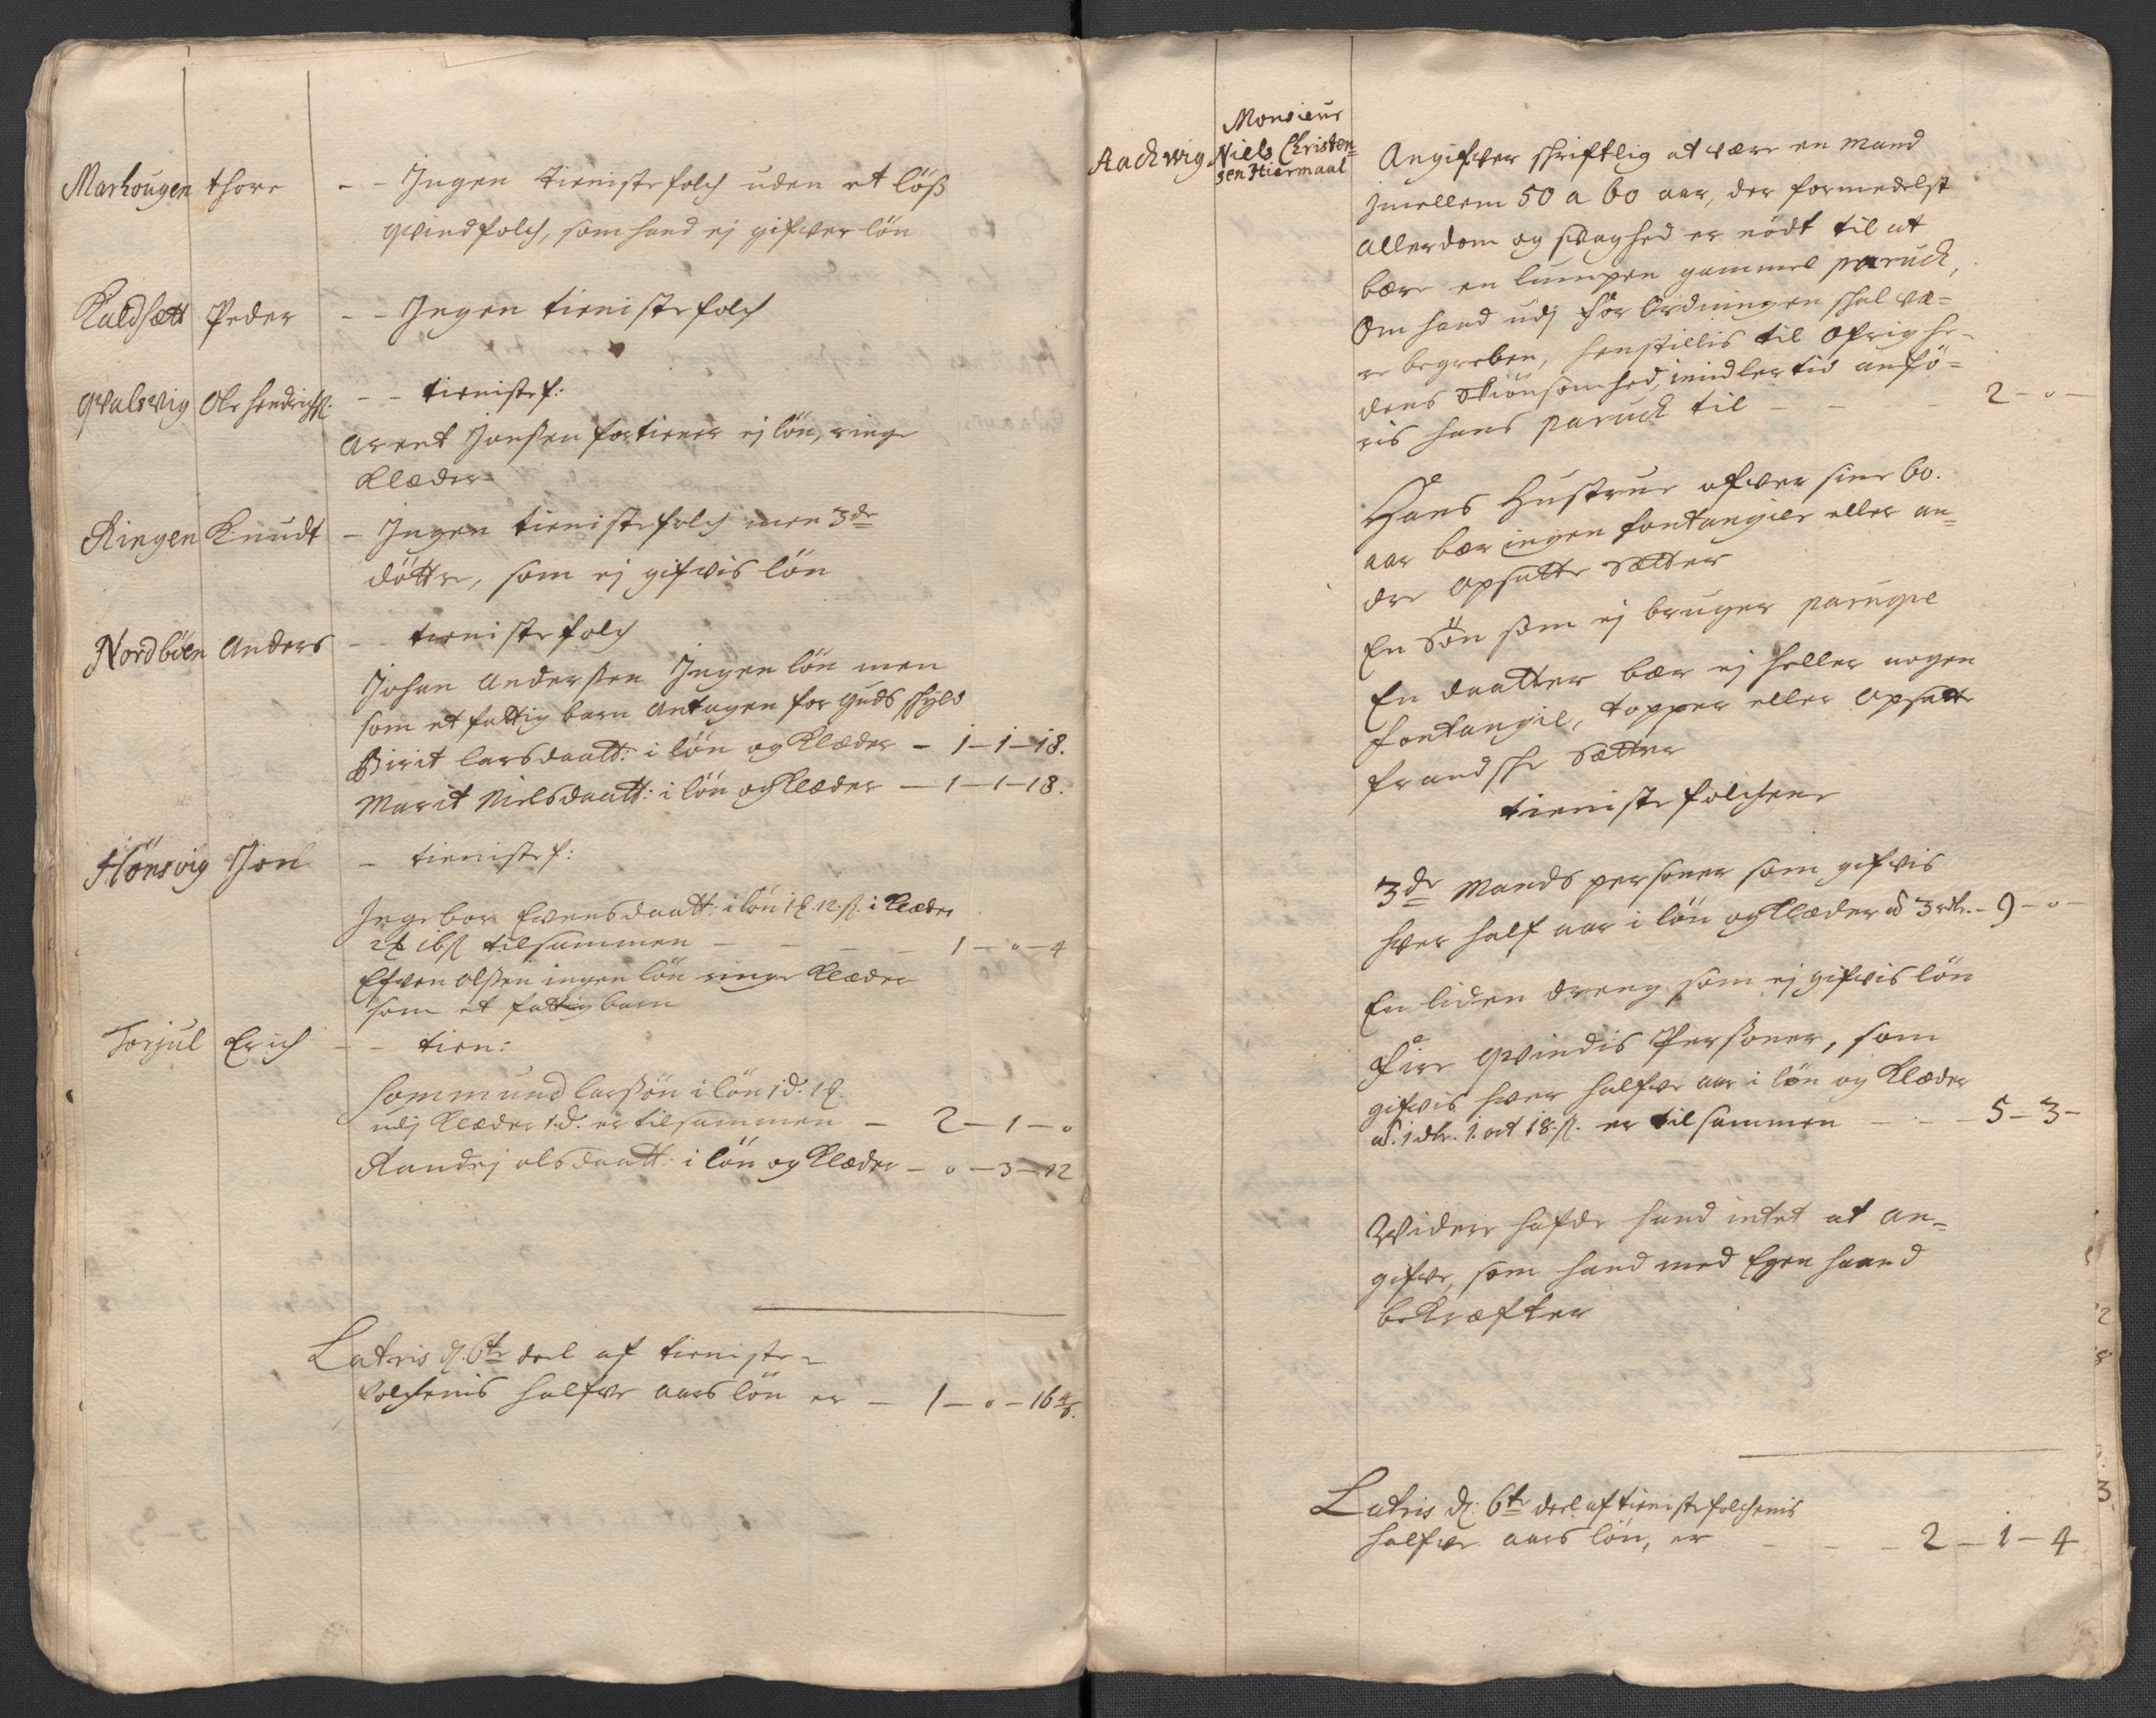 Marhougen thore - - Ingen tieniste folch uden et löß
qvindfolch, som hand ej gifver lön
Kaldsætt Peder - - Ingen tieniste folch
qvalsvig Ole Hendrichß: - - tienistef:
Arent Jonßen fortiener ej lön, ringe
Klæder
Ringen Knudt - Ingen tieniste folch men 3de
döttre, som ej gifvis lön
Nordböen Anders - - tieniste folch
Johan Anderßen Ingen lön men
som et fattig barn antagen for guds schyld
Birit larsdaatt: i lön og Klæder - 1-1-18.
Marit Nielsdaatt: i lön og Klæder - 1-1-18.
Hönsvig Jon - tienistef:
Ingebor Evensdaatt: i lön 1 12 ß. i Klæder
2 16ß tilsammen - - - - 1-0-4
Efven olßen ingen lön ringe Klæder
som et fattig barn
Torjul Erich - - tien:
Sommund larßön i lön 1d. 1
udj Klæder 1.d. er tilsammen - 2-1-0
Randj olsdaatt: i lön og Klæder - 0-3-12
Lateris d. 6te deel af tieniste-
folchenis halfve aars lön er - 1-0-16 4/6.
Aachvig Monsieur
Niels Christen=
sen Hiermaal
Angifver schriftlig at være en mand
Jmellem 50 a 60 aar, der formedelst
allerdom og svaghed er nödt til at
bære en lumpen gammel paruch,
Om hand udj for Ordningen schal væ=
re begreben, henstillis til öfrighe-
dens skiönsomhed, imidlertid anfö=
ris hans paruch til - - - - 2-0-
Hans Hustrue ofver sine 60.
aar bær ingen fontangie eller an=
dre opsatte sætter
En Sön som ej bruger paruque
En daatter bær ej heller nogen
fontangie, topper eller opsatte
frandsche Sætter
tieniste folchene
3de Mands personer som gifvis
hver half aar i lön og Klæder ad 3 rdr. - 9-0-
En liden dreng som ej gifvis lön
Fire qvindis Persioner, som
gifvis hver halfve aar i lön og Klæder
ad. 1 dlr. 1. ort 18. ß. er tilsammen - - - 5-3-
Widere hafde hand intet at an=
gifve, som hand med Egen haand
bekræfter
Lateris d. 6te deel af tieniste folchenis
halfve aars lön, er - - - 2-1-4